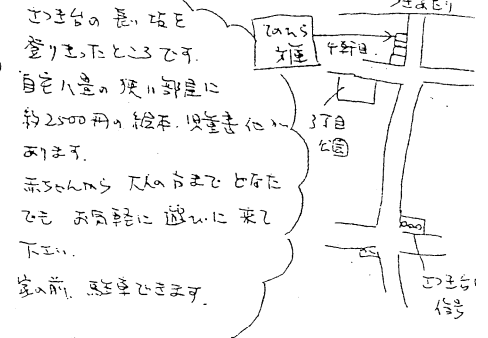 さつき台の長い坂を
登りきったところです。
自宅八畳の狭い部屋に
約2500冊の絵本、児童書他が
あります。
赤ちゃんから大人の方までどなた
でもお気軽に遊びに来て
下さい。
家の前、駐車できます。
つきあたり
てのひら
文庫
4軒目
3丁目
公園
さつき台
信号